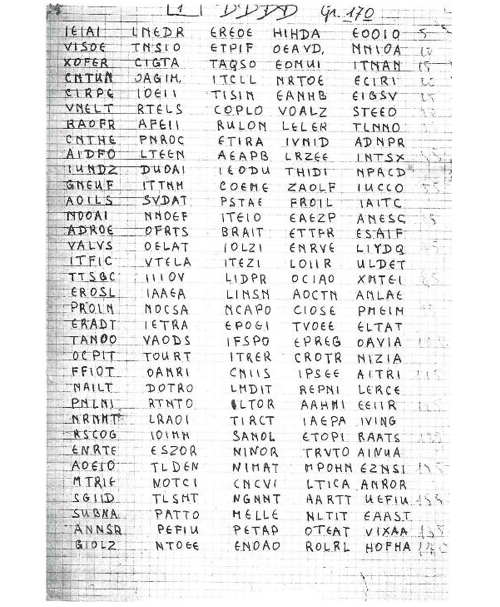 [1] DDDD Gr. 170
IEIAI LNEDR EREDE HIHDA EOOIO 5
VISOE TNSIO ETPIF OEAVD, NNIOA
XOFER CIGTA TAQSO EOMUI ITNAN
CNTUN OAGIH, ITCLL NRTOE ECIRI
CIRPG IOEII TISIN EANHB EIGSV
VNELT RTELS COPLO VOALZ STEEO
RAOFR AFEII RULON LELER TLNNO
CNTHE PNROC ETIRA IVNID ADNPR
AIDFO LTEEN AEAPB LRZEE INTSX
IUNDZ DUOAI IEODU THIDI NPACD
GNEUF ITTNM COEME ZAOLF IUCCO
AOILS SVDAT PSTAE FROIL IAITC
NOOAI NNOEF ITEIO EAEZP ANESG
ADROE OFRTS BRAIT ETTPR ESAIF
VALVS OELAT IOLZI ENRVE LIYDQ
ITFIC VTELA ITEZI LOIIR ULDET
TTSGC IIIOV LIDPR OCIAO XMTEI
EROSL IAAEA LINSN AOCTN ANLAE
PROIN NOCSA NCAPO CIOSE PMEIM
ERADT IETRA EPOGI TVOEE ELTAT
TANOO VAODS IFSPO EPREG OAVIA
OCPIT TOURT ITRER CROTR NIZIA
FFIOT OANRI CNIIS IPSEE AITRI
NAILT DOTRO LMDIT REPNI LERCE
PNLNI RTNTO ILTOR AAHMI EEIIR
NRNMT LRAOI TIRCT IAEPA IVING
RSCOG IOIMM SANOL ETOPI RAATS
ENRTE ESZOR NINOR TRVTO AINUA
AOEIO TLDEN NIMAT MPOHN EZNSI
MTRIE NOTCI CNCVI LTICA ANROR
SGIID TLSMT NGNNT AARTT UEFIU
SUBNA PATTO MELLE NLTIT EAAST
ANNSR PEFIU PETAP OTEAT VIXAA
GIOLZ NTOEE ENOAO ROLRL HOFHA 170